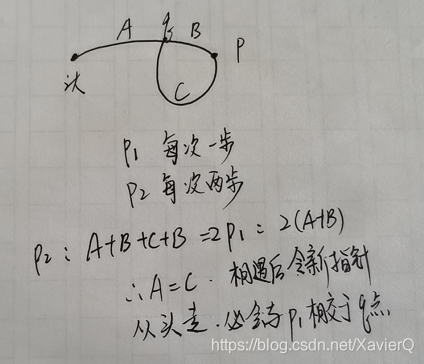 A q B
P
头
C
p1 每次一步
p2 每次两步
p2: A+B+C+B=2p1=2(A+B)
∴A=C. 相遇后令新指针
从头走. 必会与p1相交于q点
https://blog.csdn.net/XavierQ